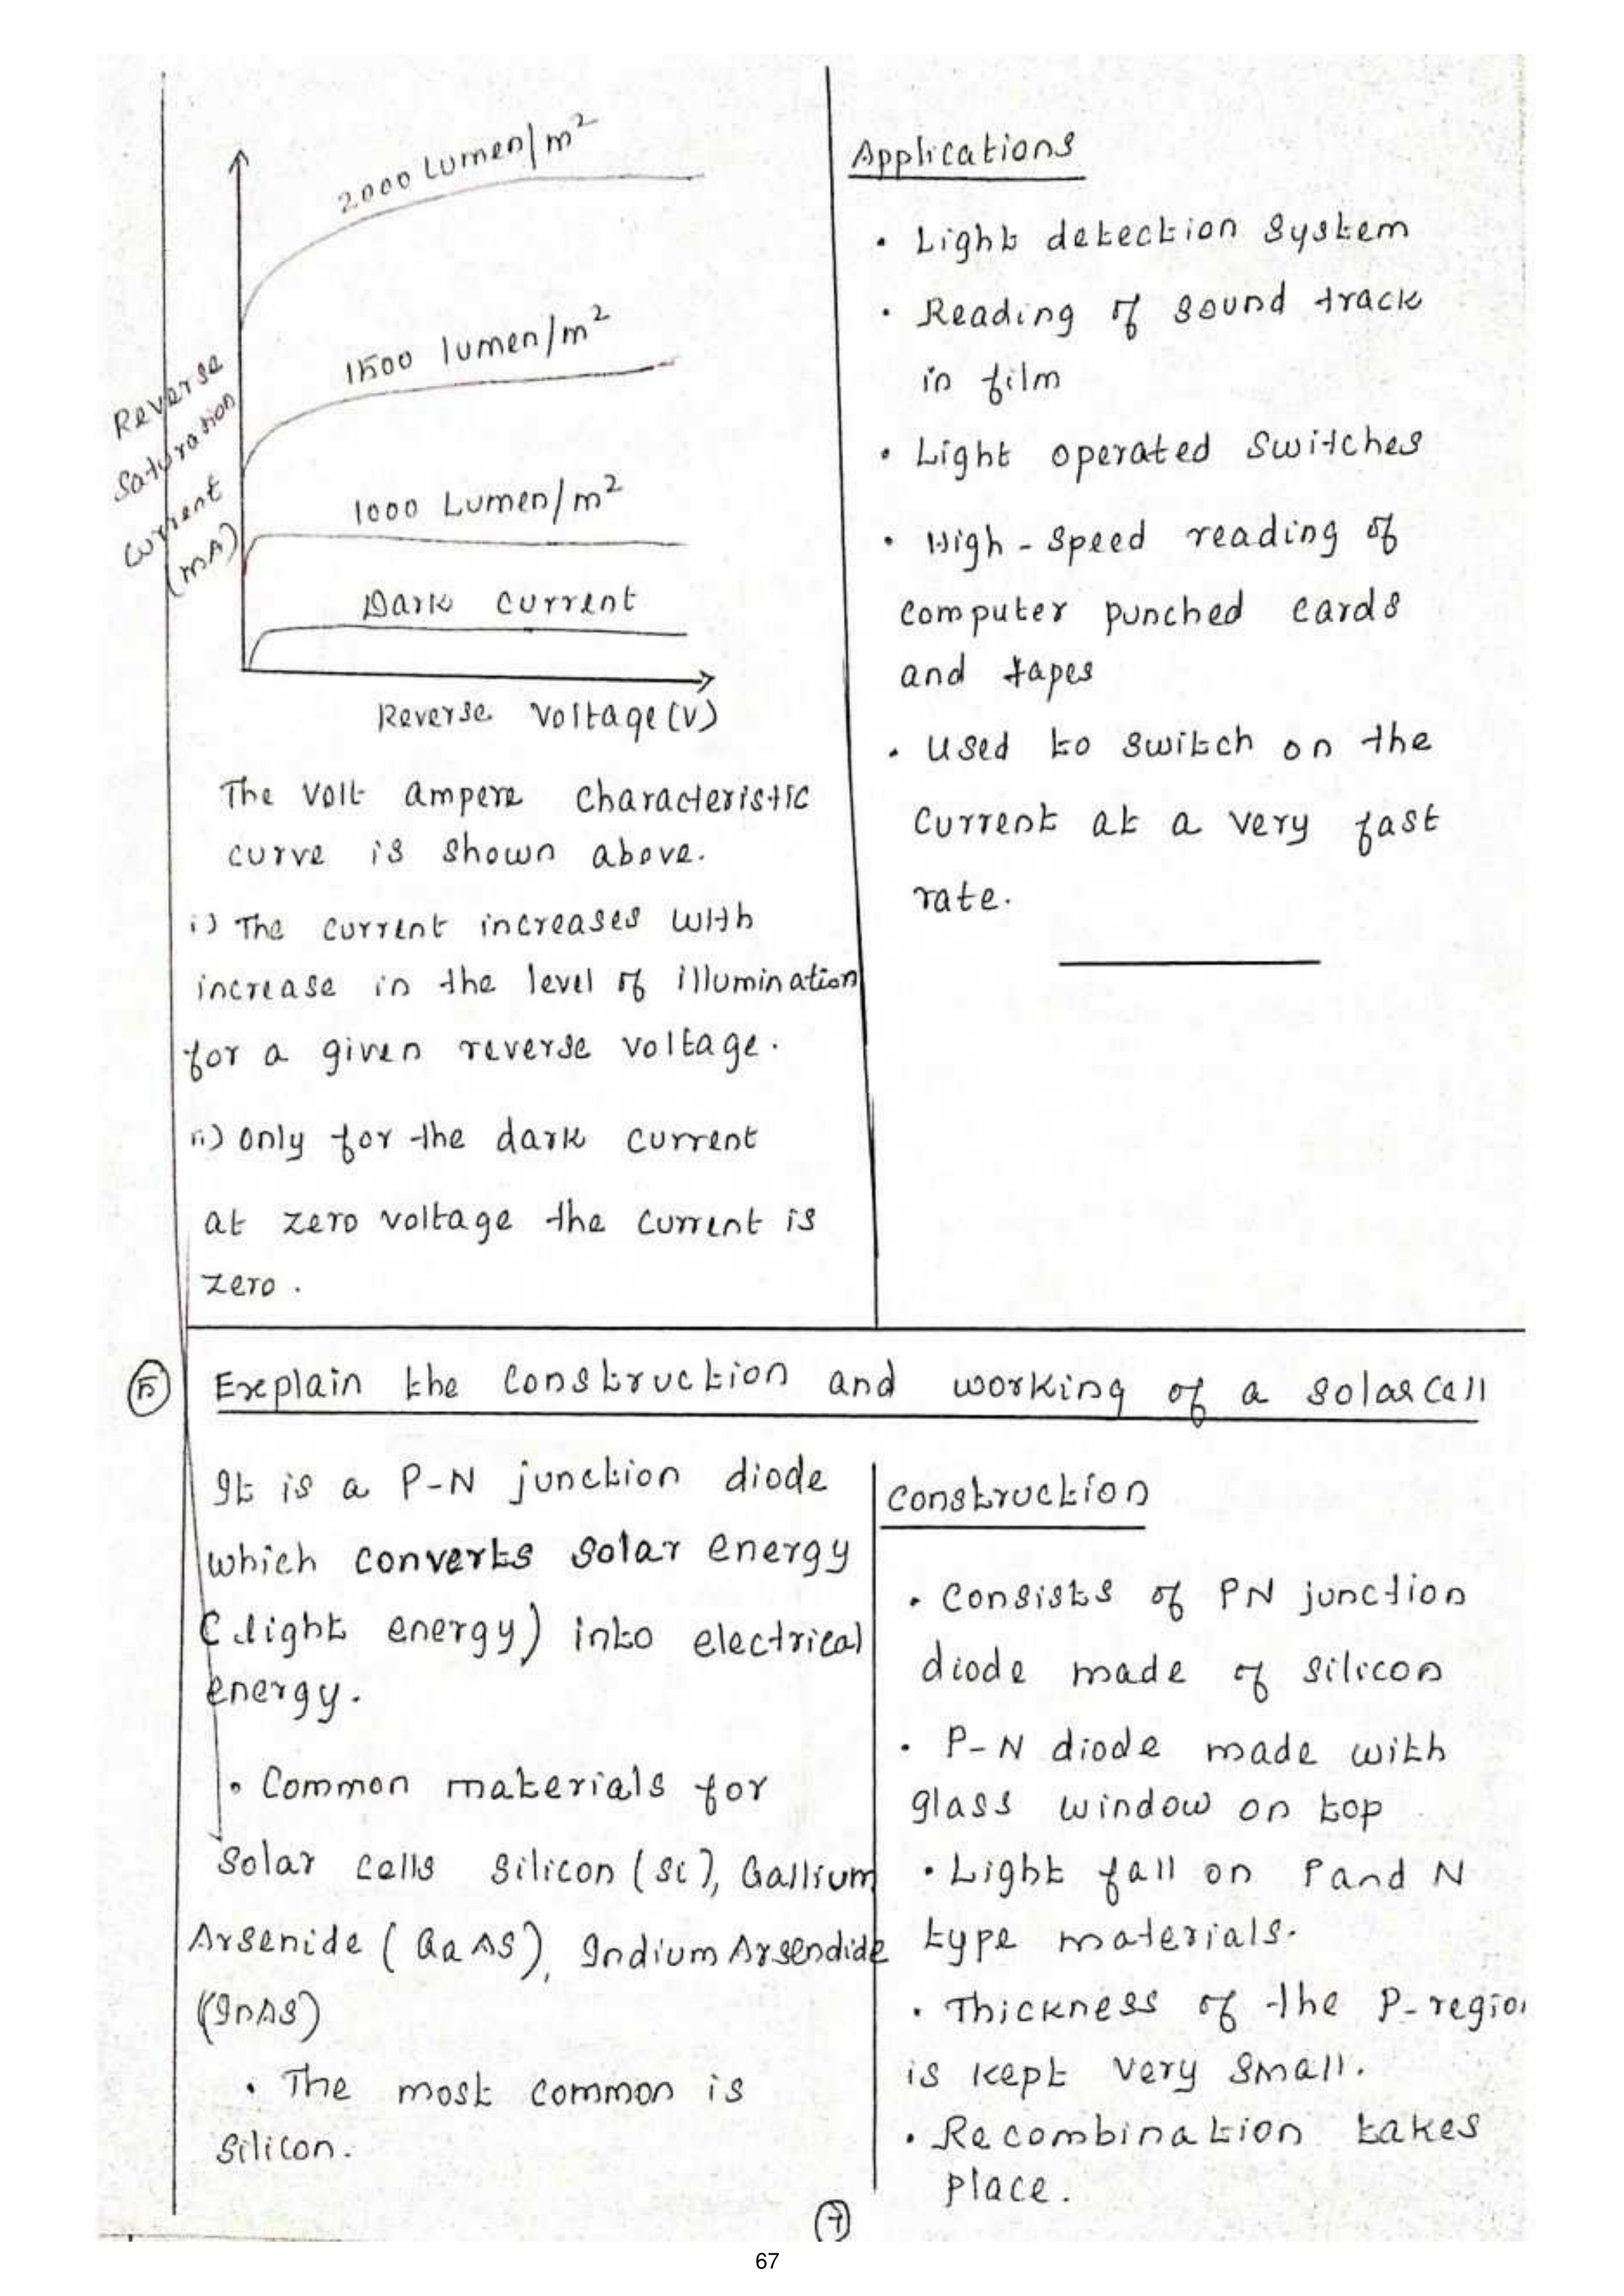 2000 Lumen/m²
1500 lumen/m²
1000 Lumen/m²
Dark current
Reverse
Saturation
Current
(mA)
Reverse Voltage (V)
The Volt ampere characteristic
curve is shown above.
i) The current increases with
increase in the level of illumination
for a given reverse voltage.
ii) only for the dark current
at zero voltage the current is
zero.
Applications
• Light detection system
• Reading of sound track
in film
• Light operated switches
• High-speed reading of
computer punched cards
and tapes
• Used to switch on the
current at a very fast
rate.
5 Explain the construction and working of a solar cell
It is a P-N junction diode
which converts solar energy
(light energy) into electrical
energy.
• Common materials for
solar cells silicon (Si), Gallium
Arsenide (GaAS), Indium Arsendide
(InAS)
• The most common is
silicon.
Construction
• Consists of PN junction
diode made of silicon
• P-N diode made with
glass window on top
• Light fall on P and N
type materials.
• Thickness of the P-region
is kept very small.
• Recombination takes
place.
7
67